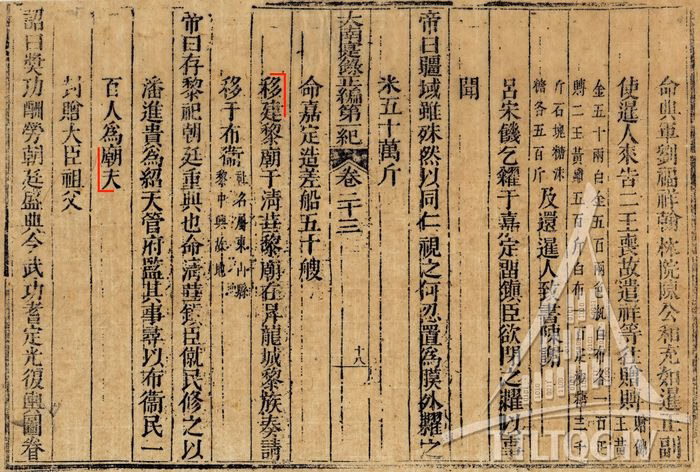 命典軍劉福祥翰林院陳公和充如暹正副
使暹人來告二王喪故遣祥等往贈賻
贈佛
王黃
金五十兩白金五百兩色紈白布各一百疋
賻二王黃蠟五百斤白布一百疋極糖三千
斤石塊糖沫
糖各五百斤
及還暹人致書陳謝
呂宋饑乞糴于嘉定留鎮臣欲閉之糴以事
聞
帝曰疆域雖殊然以同仁視之何忍置為膜外糴之
米五十萬斤
大南寔錄正編第一紀 卷二十三
十八
命嘉定造差船五十艘
移建黎廟于清華黎廟在昇龍城黎族奏請
移于布衞
社名屬東山縣
黎中興故地
帝曰存黎祀朝廷重典也命清華鎮臣僦民修之以
潘進貴為紹天管府監其事尋以布衞民一
百人為廟夫
封贈大臣祖父
詔曰獎功酬勞朝廷盛典今武功耆定光復輿圖眷